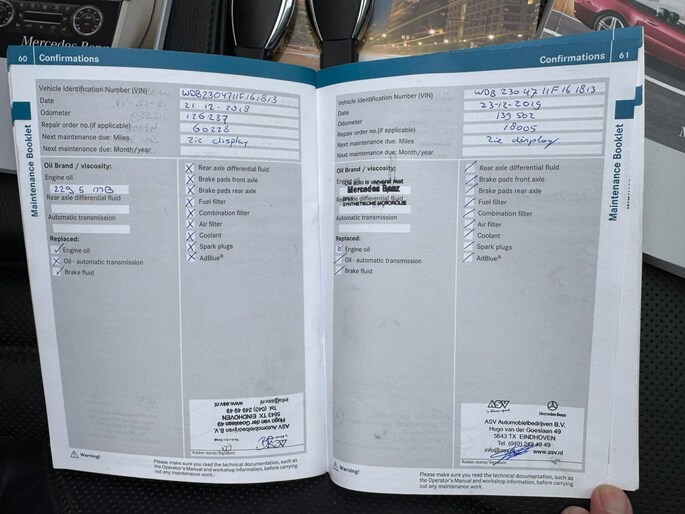 Mercedes-Benz
60 Confirmations
Vehicle Identification Number (VIN) WDB2304711F161813
Date 21-12-2018
Odometer 126237
Repair order no.(if applicable) 60228
Next maintenance due: Miles zie display
Next maintenance due: Month/year
Maintenance Booklet
Oil Brand / viscosity:
Engine oil
229 5 MB
Rear axle differential fluid
Automatic transmission
Replaced:
Engine oil
Oil - automatic transmission
Brake fluid
Rear axle differential fluid
Brake pads front axle
Brake pads rear axle
Fuel filter
Combination filter
Air filter
Coolant
Spark plugs
AdBlue®
ASV Automobielbedrijven B.V.
Hugo van der Goeslaan 49
5643 TX EINDHOVEN
Tel. (040) 249 49 49
info@asv.nl www.asv.nl
Rubber stamp/Signature
Warning!
Please make sure you read the technical documentation, such as
the Operator's Manual and workshop information, before carrying
out any maintenance work.
Confirmations 61
Vehicle Identification Number (VIN) WDB2304711F161813
Date 23-12-2019
Odometer 139502
Repair order no.(if applicable) 18005
Next maintenance due: Miles zie display
Next maintenance due: Month/year
Maintenance Booklet
Oil Brand / viscosity:
Mercedes Benz
SYNTHETISCHE MOTOROLIE
Automatic transmission
Replaced:
Engine oil
Oil - automatic transmission
Brake fluid
Rear axle differential fluid
Brake pads front axle
Brake pads rear axle
Fuel filter
Combination filter
Air filter
Coolant
Spark plugs
AdBlue®
ASV
Mercedes-Benz
ASV Automobielbedrijven B.V.
Hugo van der Goeslaan 49
5643 TX EINDHOVEN
Tel. (040) 249 49 49
info@asv.nl www.asv.nl
Rubber stamp/Signature
Warning!
Please make sure you read the technical documentation, such as
the Operator's Manual and workshop information, before carrying
out any maintenance work.